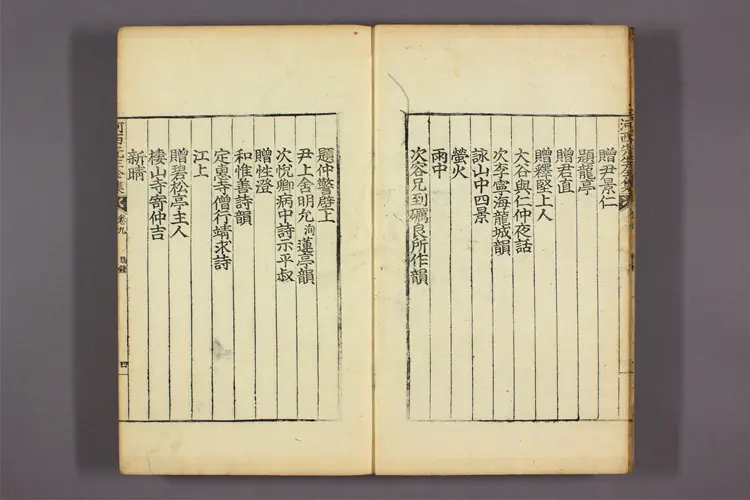 贈尹景仁
題龍亭
贈君直
贈釋堅上人
大谷與仁仲夜話
次李寧海龍城韻
詠山中四景
螢火
雨中
次容兄到礪良所作韻
題仲警壁上
尹上舍明允洵蓮亭韻
次悅卿病中詩示平叔
贈性澄
和惟善詩韻
定惠寺僧行靖求詩
江上
贈碧松亭主人
樓山寺寄仲吉
新晴
卷九
目錄
四